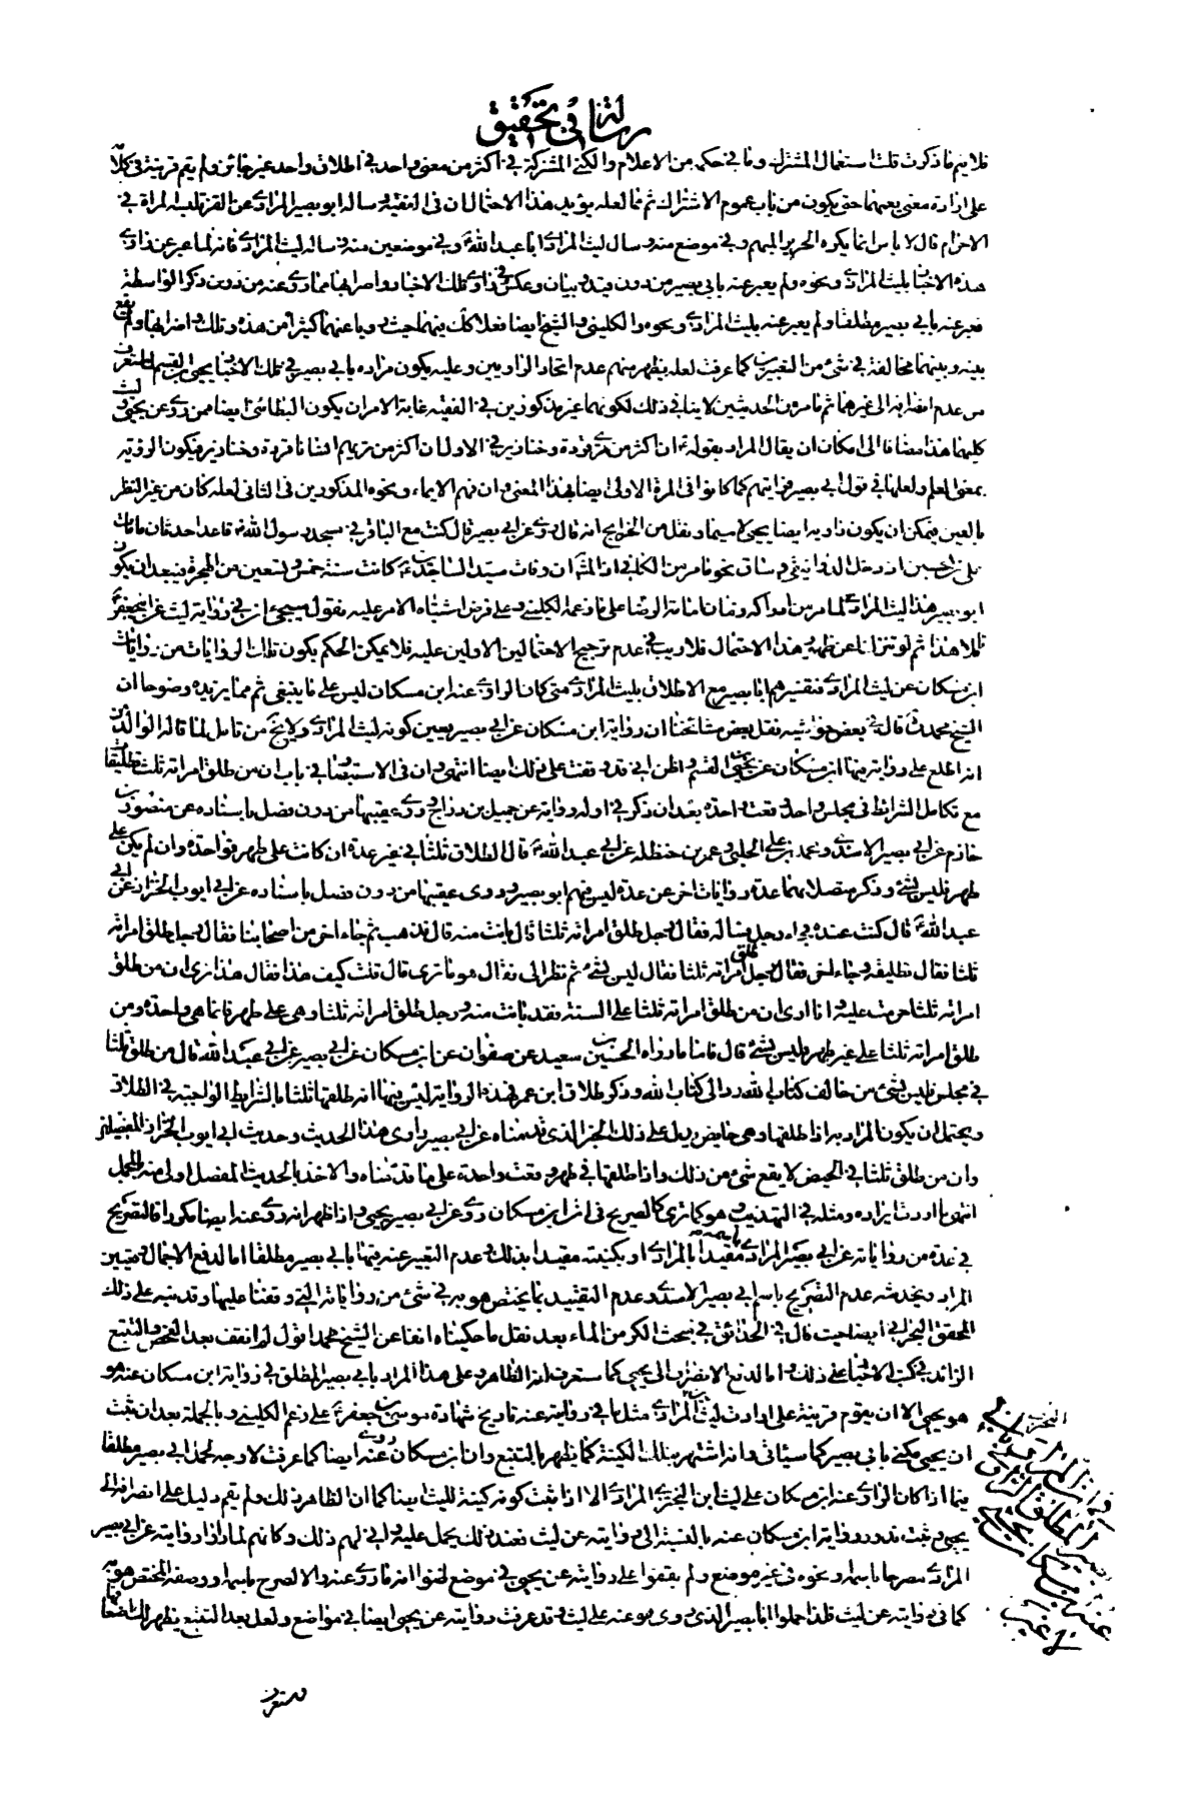 رسالة في تحقيق
فلا يتم ما ذكرت قلت استعمال المشترك وما في حكمه من الاعلام والكنى المشتركة في اكثر من معنى واحد في اطلاق واحد غير جائز ولم يقم قرينة في كلامه
على ارادة معنى يعمهما حتى يكون من باب عموم الاشتراك ثم مما لعله يؤيد هذا الاحتمال ان في الفقيه وساله ابو بصير المرادي عن القز تلبسه المراة في
الاحرام قال لا باس انما يكره الحرير المبهم وفي موضع منه وسال ليث المرادي ابا عبد الله ع وفي موضعين منه وساله ليث المرادي فانه لما عبر عن راوي
هذه الاخبار بليث المرادي ونحوه ولم يعبر عنه بابي بصير من دون قيد وبيان وعكس في راوي تلك الاخبار واضرابها مما روى عنه من دون ذكر الواسطة
فعبر عنه بابي بصير مطلقا ولم يعبر عنه بليث المرادي ونحوه والكليني والشيخ ايضا فعلا كك بينهما حيث رويا عنهما كثيرا من هذه وتلك واضرابها ولم يقع
بينه وبينهما مخالفة في شئ من التعبيرين كما عرفت لعله يظهر منهم عدم اتحاد الراويين وعليه يكون مراده بابي بصير في تلك الاخبار يحيى بن القسم لما ستعرف
من عدم انصرافه الى غيرهما ثم ما مر من الحديثين لا ينافي ذلك لكونهما غير مذكورين في الفقيه غاية الامر ان يكون البطائنى ايضا ممن روى عن يحيى وليث
كليهما هذا مضافا الى امكان ان يقال المراد بقوله ع ان اكثر من ترى قردة وخنازير في الاول ان اكثر من تريهم انسانا قردة وخنازير فيكون الرؤية
بمعنى العلم ولعلها في قول ابي بصير فرايتهم كما كانوا في المرة الاولى ايضا بهذا المعنى وان فهم الايماء ونحوه المذكورين في الثاني لعله كان من غير النظر
بالعين فيمكن ان يكون راويه ايضا يحيى لا سيما ونقل من الخرايج انه قال روى عن ابي بصير قال كنت مع الباقر في مسجد رسول الله ص قاعدا حدثان ما مات
علي بن الحسين اذ دخل الدوانيقي وساق نحو ما مر من الكافي اذ المش ان وفات سيد الساجدين ع كانت سنة خمس وتسعين من الهجرة فيبعد ان يكون
ابو بصير هذا ليث المرادي لما مر من ادراكه زمان امامة الرضا على ما زعمه الكليني وعلى فرض اشتباه الامر عليه نقول سيجئ ان في رواية ليث عن ابي جعفر ع
كلاما هذا ثم لو تنزلنا عن ظهور هذا الاحتمال فلا ريب في عدم ترجيح الاحتمالين الاولين عليه فلا يمكن الحكم بكون تلك الروايات من روايات
ابن مسكان عن ليث المرادي فتفسيرهم ابا بصير مع الاطلاق بليث المرادي متى كان الراوي عنه ابن مسكان ليس على ما ينبغي ثم مما يزيده وضوحا ان
الشيخ محمدا ره قال في بعض حواشيه نقل بعض مشائخنا ان رواية ابن مسكان عن ابي بصير يعين كونه ليث المرادي ولا يخ من تامل لما قاله الوالد من
انه اطلع على رواية فيها ابن مسكان عن يحيى بن القسم واظن ابي قد وقفت على ذلك ايضا انتهى وان في الاستبصار في باب ان من طلق امراته ثلث تطليقات
مع تكامل الشرائط في مجلس واحد وقعت واحدة بعد ان ذكر في اوله رواية عن جميل بن دراج روى عقيبها من دون فصل باسناده عن منصور بن
حازم عن ابي بصير الاسدي ومحمد بن علي الحلبي وعمر بن حنظلة عن ابي عبد الله ع قال الطلاق ثلثا في غير عدة ان كانت على طهر فواحدة وان لم يكن على
طهر فليس بشئ وذكر متصلا بهما عدة روايات اخر عن عدة ليس فيهم ابو بصير وروى عقيبها من دون فصل باسناده عن ابي ايوب الخزاز عن ابي
عبد الله ع قال كنت عنده فجاء رجل فساله فقال رجل طلق امراته ثلثا قال بانت منه قال فذهب ثم جاء اخر من اصحابنا فقال رجل طلق امراته
ثلثا فقال تطليقة وجاء اخر فقال رجل طلق امراته ثلثا فقال ليس بشئ ثم نظر الى فقال هو ما ترى قال قلت كيف هذا فقال هذا يرى ان من طلق
امراته ثلثا حرمت عليه وانا ارى ان من طلق امراته ثلثا على السنة فقد بانت منه ورجل طلق امراته ثلثا وهي على طهر فانما هي واحدة ومن
طلق امراته ثلثا على غير طهر فليس بشئ قال فاما ما رواه الحسين بن سعيد عن صفوان عن ابن مسكان عن ابي بصير عن ابي عبد الله ع قال من طلق ثلثا
في مجلس فليس بشئ من خالف كتاب الله رد الى كتاب الله وذكر طلاق ابن عمر فهذه الرواية ليس فيها انه طلقها ثلثا بالشرايط الواجبة في الطلاق
ويحتمل ان يكون المراد به اذا طلقها وهي حايض يدل على ذلك الخبر الذي قدمناه عن ابي بصير راوي هذا الحديث وحديث ابي ايوب الخزاز المفصل
وان من طلق ثلثا في الحيض لا يقع شئ من ذلك واذا طلقها في طهر وقعت واحدة على ما قدمناه والاخذ بالحديث المفصل اولى منه بالمجمل
انتهى ما اردنا ايراده ومثله في التهذيب وهو كما ترى كالصريح في ان ابن مسكان روى عن ابي بصير يحيى واذا ظهر انه روى عنه ايضا مكررا فالتصريح
في عدة من رواياته عن ابي بصير المرادي باسمه مقيدا بالمرادي او بكنيته مقيدا بذلك وعدم التعبير عنه فيها بابي بصير مطلقا اما لدفع الاجمال وتعيين
المراد ويخدشه عدم التصريح باسم ابي بصير الاسدي وعدم التقييد بما يختص هو به في شئ من رواياته التي وقفنا عليها وقد تنبه على ذلك
المحقق البحراني ايضا حيث قال في الحدائق في مبحث الكر من الماء بعد نقل ما حكيناه انفا عن الشيخ محمد اقول لم اقف بعد الفحص والتتبع
الزائد في كتب الاخبار على ذلك واما لدفع الانصراف الى يحيى كما ستعرف انه الظاهر وعلى هذا المراد بابي بصير المطلق في رواية ابن مسكان عنه هو
هو يحيى الا ان يقوم قرينة على ارادة ليث المرادي مثل ما في روايته عنه تاريخ شهادة موسى بن جعفر ع على زعم الكليني وبالجملة بعد ان ثبت
ان يحيى مكنى بابي بصير كما سيأتي وانه اشتهر بتلك الكنية كما يظهر بالتتبع وان ابن مسكان روى عنه ايضا كما عرفت لا وجه لحمل ابي بصير مطلقا
فيما اذا كان الراوي عنه ابن مسكان على ليث ابن البختري المرادي الا اذا ثبت كونه كنية لليث بينا كما ان الظاهر ذلك ولم يقم دليل على انصرافه الى
يحيى وثبت ندور رواية ابن مسكان عنه بالنسبة الى روايته عن ليث فعند ذلك يحمل عليه وانى لهم ذلك وكانهم لما راوا روايته عن ابي بصير
المرادي مصرحا باسمه ونحوه في غير موضع ولم يقفوا على روايته عن يحيى في موضع ظنوا انه ما روى عنه والا لصرح باسمه او وصفه المختص هو به
كما في روايته عن ليث فلذا حملوا ابا بصير الذي روى هو عنه على ليث وقد عرفت روايته عن يحيى ايضا في مواضع ولعل بعد التتبع يظهر لك اضعافها
فستعرف